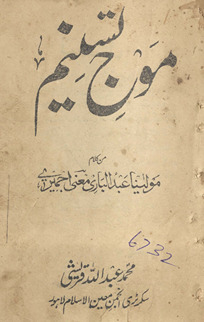 موج تسنیم
من کلام
مولینا عبدالباری معنی اجمیری
6732
محمد عبد اللہ قریشی
سکرٹری انجمن معین الاسلام لاہور